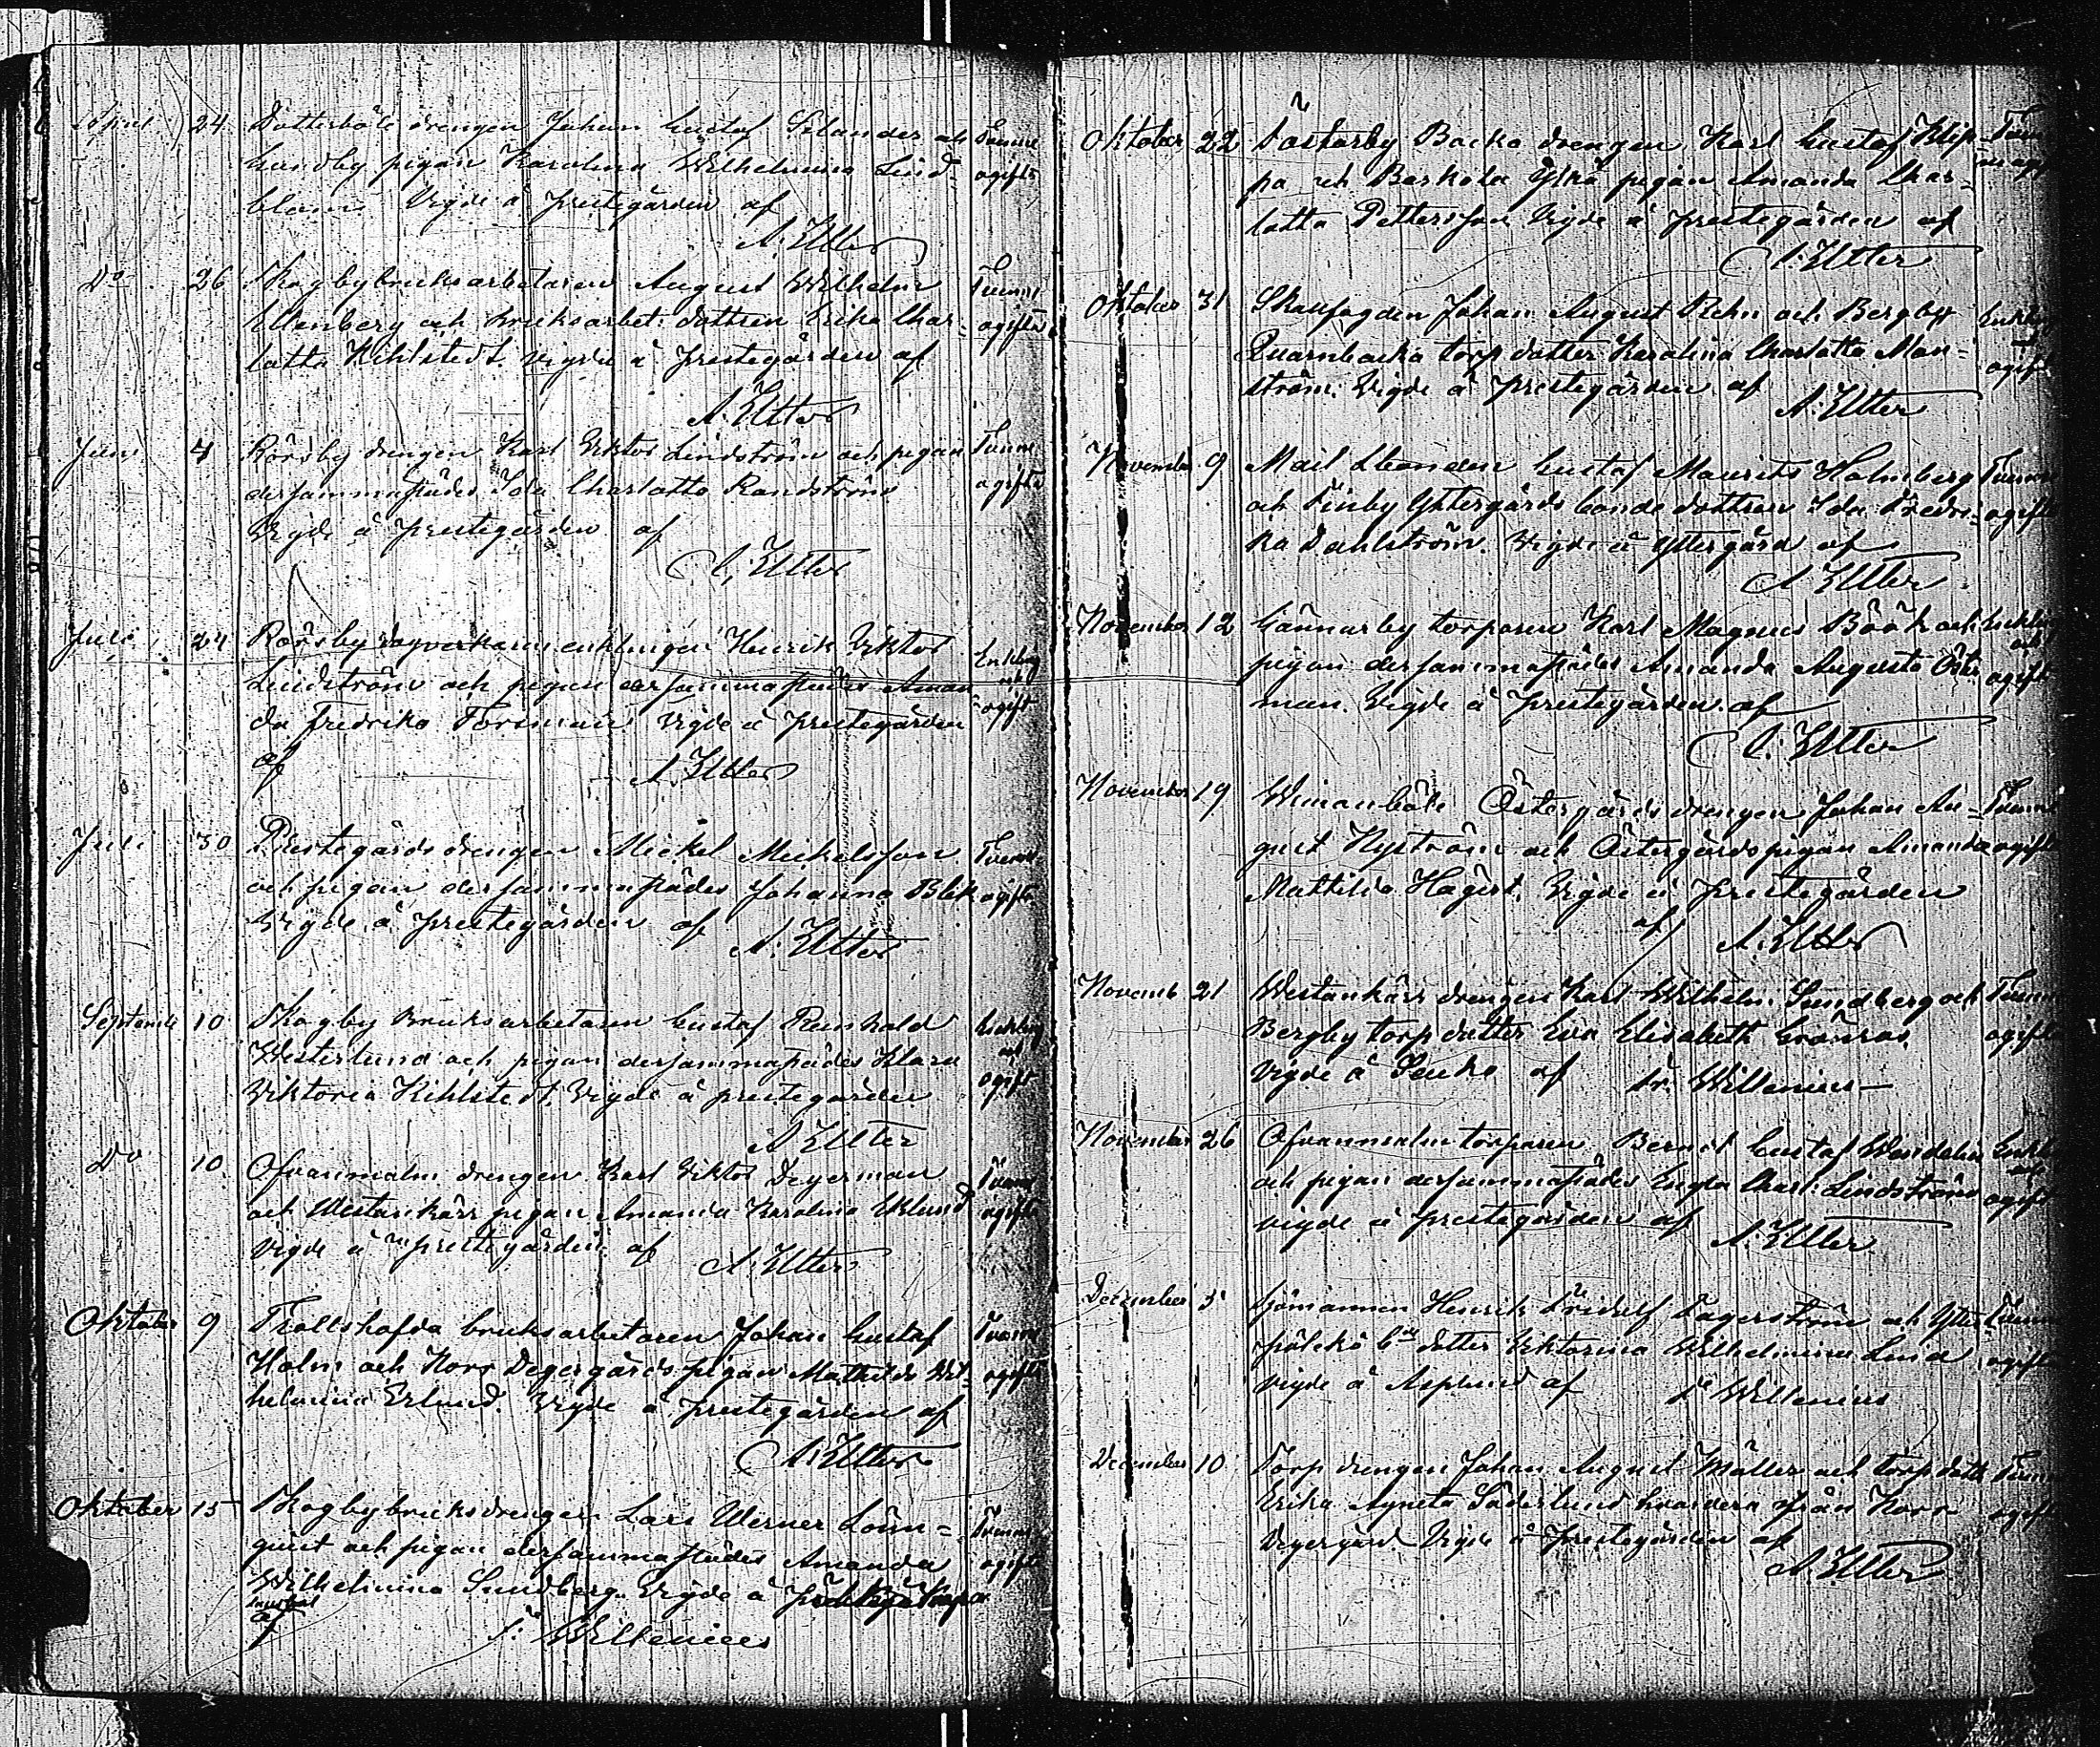 April 24 Dotterböle drengen Johan Gustaf Selander och Tvenne
Lundby pigan Karolina Wilhelmina Lind- ogifte
blom Vigde å prestegården af
A. Utter
Do 26 Skogby bruksarbetaren August Wilhelm Tvenne
Ellenberg och bruksarbet. dottren Erika Char- ogifta
lotta Kihlstedt. vigde å prestegården af
A. Utter
Juni 4 Rösby drengen Karl Viktor Lindström och pigan Tvenne
dersammastädes Ida Charlotta Randström ogifte
Vigde å prestegården af
A. Utter
Juli 24 Rösby dagverkaren enklingen Henrik Viktor Enkling
Lindström och pigan dersammastädes Aman- och
da Fredrika Forsman vigde å prestegården ogift
af A. Utter
Juli 30 Prestegårds drengen Mickel Mickelsson Tvenne
och pigan dersammastädes Johanna Blek ogifte
Vigde å prestegården af
A. Utter
Septemb 10 Skogby Bruksarbetaren Gustaf Reinhold Enkling
Westerlund och pigan dersammastädes Klara och
Viktoria Kihlstedt. Vigde å prestegården ogift
A Utter
Do 10 Ofvanmalm drengen Karl Viktor Degerman Tvenne
och Westankärr pigan Amanda Karolina Eklund ogifte
vigde å prestegården af A. Utter
Oktober 9 Trollshofda bruksarbetaren Johan Gustaf Tvenne
Holm och Norr Degergårds pigan Mathilda Wil- ogifte
helmina Erlund. Vigde å prestegården af
A. Utter
Oktober 15 Skogby bruksdrengen Lars Werner Lönn- Tvenne
quist och pigan dersammastädes Amanda ogifte
Wilhelmina Sundberg. Vigde å
af F. Willenius
Oktober 22 Tosterby Backa drengen Karl Gustaf Klip-
pa och Baskala pigan Amanda Char-
lotta Pettersson Vigde å prestegården af
A. Utter
Oktober 31 Skaufogden Johan August Rehn och Bergby Enkling
Quarnbacka torp dotter Karolina Charlotta Man-
ström. Vigde å prestegården af ogift
A. Utter
November 9 Mail Gustaf Maurits Holmberg Tvenne
och Finby Yttergårds bonde dottren Ida Fredri- ogifte
ka Dahlström. Vigde å Yttergård af
A Utter
November 12 Gånnarby torparen Karl Magnus Böök och Enkling
pigan dersammastädes Amanda Augusta Öster och
man. Vigde å prestegården af ogift
A. Utter
November 19 Wimanböle Östergårds drengen Johan Au- Tvenne
gust Nyström och Östergårds pigan Amanda ogifte
Mathilda Hagert. Vigde å prestegården
af A. Utter
Novemb 21 Westankärr drengen Karl Wilhelm Sundberg och Tvenne
Bergby torp dotter Eva Elisabeth Grönroos ogifte
vigde å af Fr. Willenius
November 26 Ofvanmalm torparen Bernt Gustaf Wendelin Enkling
och pigan dersammastädes Engla Charl. Lindström och
vigde å prestegården af ogift
A. Utter
December 5 Sjömannen Henrik Fridolf Lagerström och Ytter-
dotter Viktorina Wilhelmina Lind ogifte
vigde å Asplund af Fr Willenius
December 10 Torp drengen Johan August Möller och torp dottr
Erika Agneta Söderlund hvardera från Norr- ogifte
Degergård Vigde å prestegården af
A. Utter